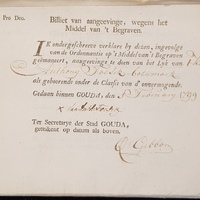 Pro Deo.
Billiet van aangeevinge, wegens het
Middel van 't Begraven.
IK ondergeschreeve verklare by dezen, ingevolge
van de Ordonnantie op 't Middel van 't Begraven
geëmaneert, aangeevinge te doen van het Lyk van
als gehoorende onder de Classis van d' onvermogende.
Gedaan binnen GOUDA, den
Ter Secretarye der Stad GOUDA,
getekent op datum als boven.